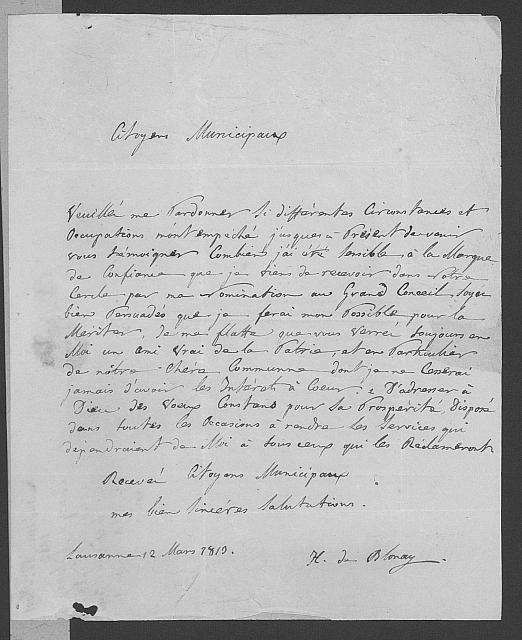 Citoyens Municipaux
Veuillé me Pardonner Si différentes Circonstances et
Occupations m'ont empéché jusques a Présent de venir
vous témoigner Combien j'ai été Sensible à la Marque
de Confiance que je viens de recevoir dans votre
Cercle par ma Nomination au Grand Conseil, Soyés
bien Persuadés que je ferai mon Possible pour la
Meriter, Je me flatte que vous verrés toujours en
Moi un ami Vrai de la Patrie, et en Particulier
de nôtre Chére Communne dont je ne Cesserai
jamais d'avoir les Interets à Coeur! & D'adresser à
Dieu des Voeux Constans pour Sa Prospérité, Disposé
dans toutes les Occasions à rendre les Services qui
dependraient de Moi à tous ceux qui les Réclameront
Recevé Citoyens Municipaux
mes bien Sincéres Salutations.
Lausanne 12 Mars
H. de Blonay